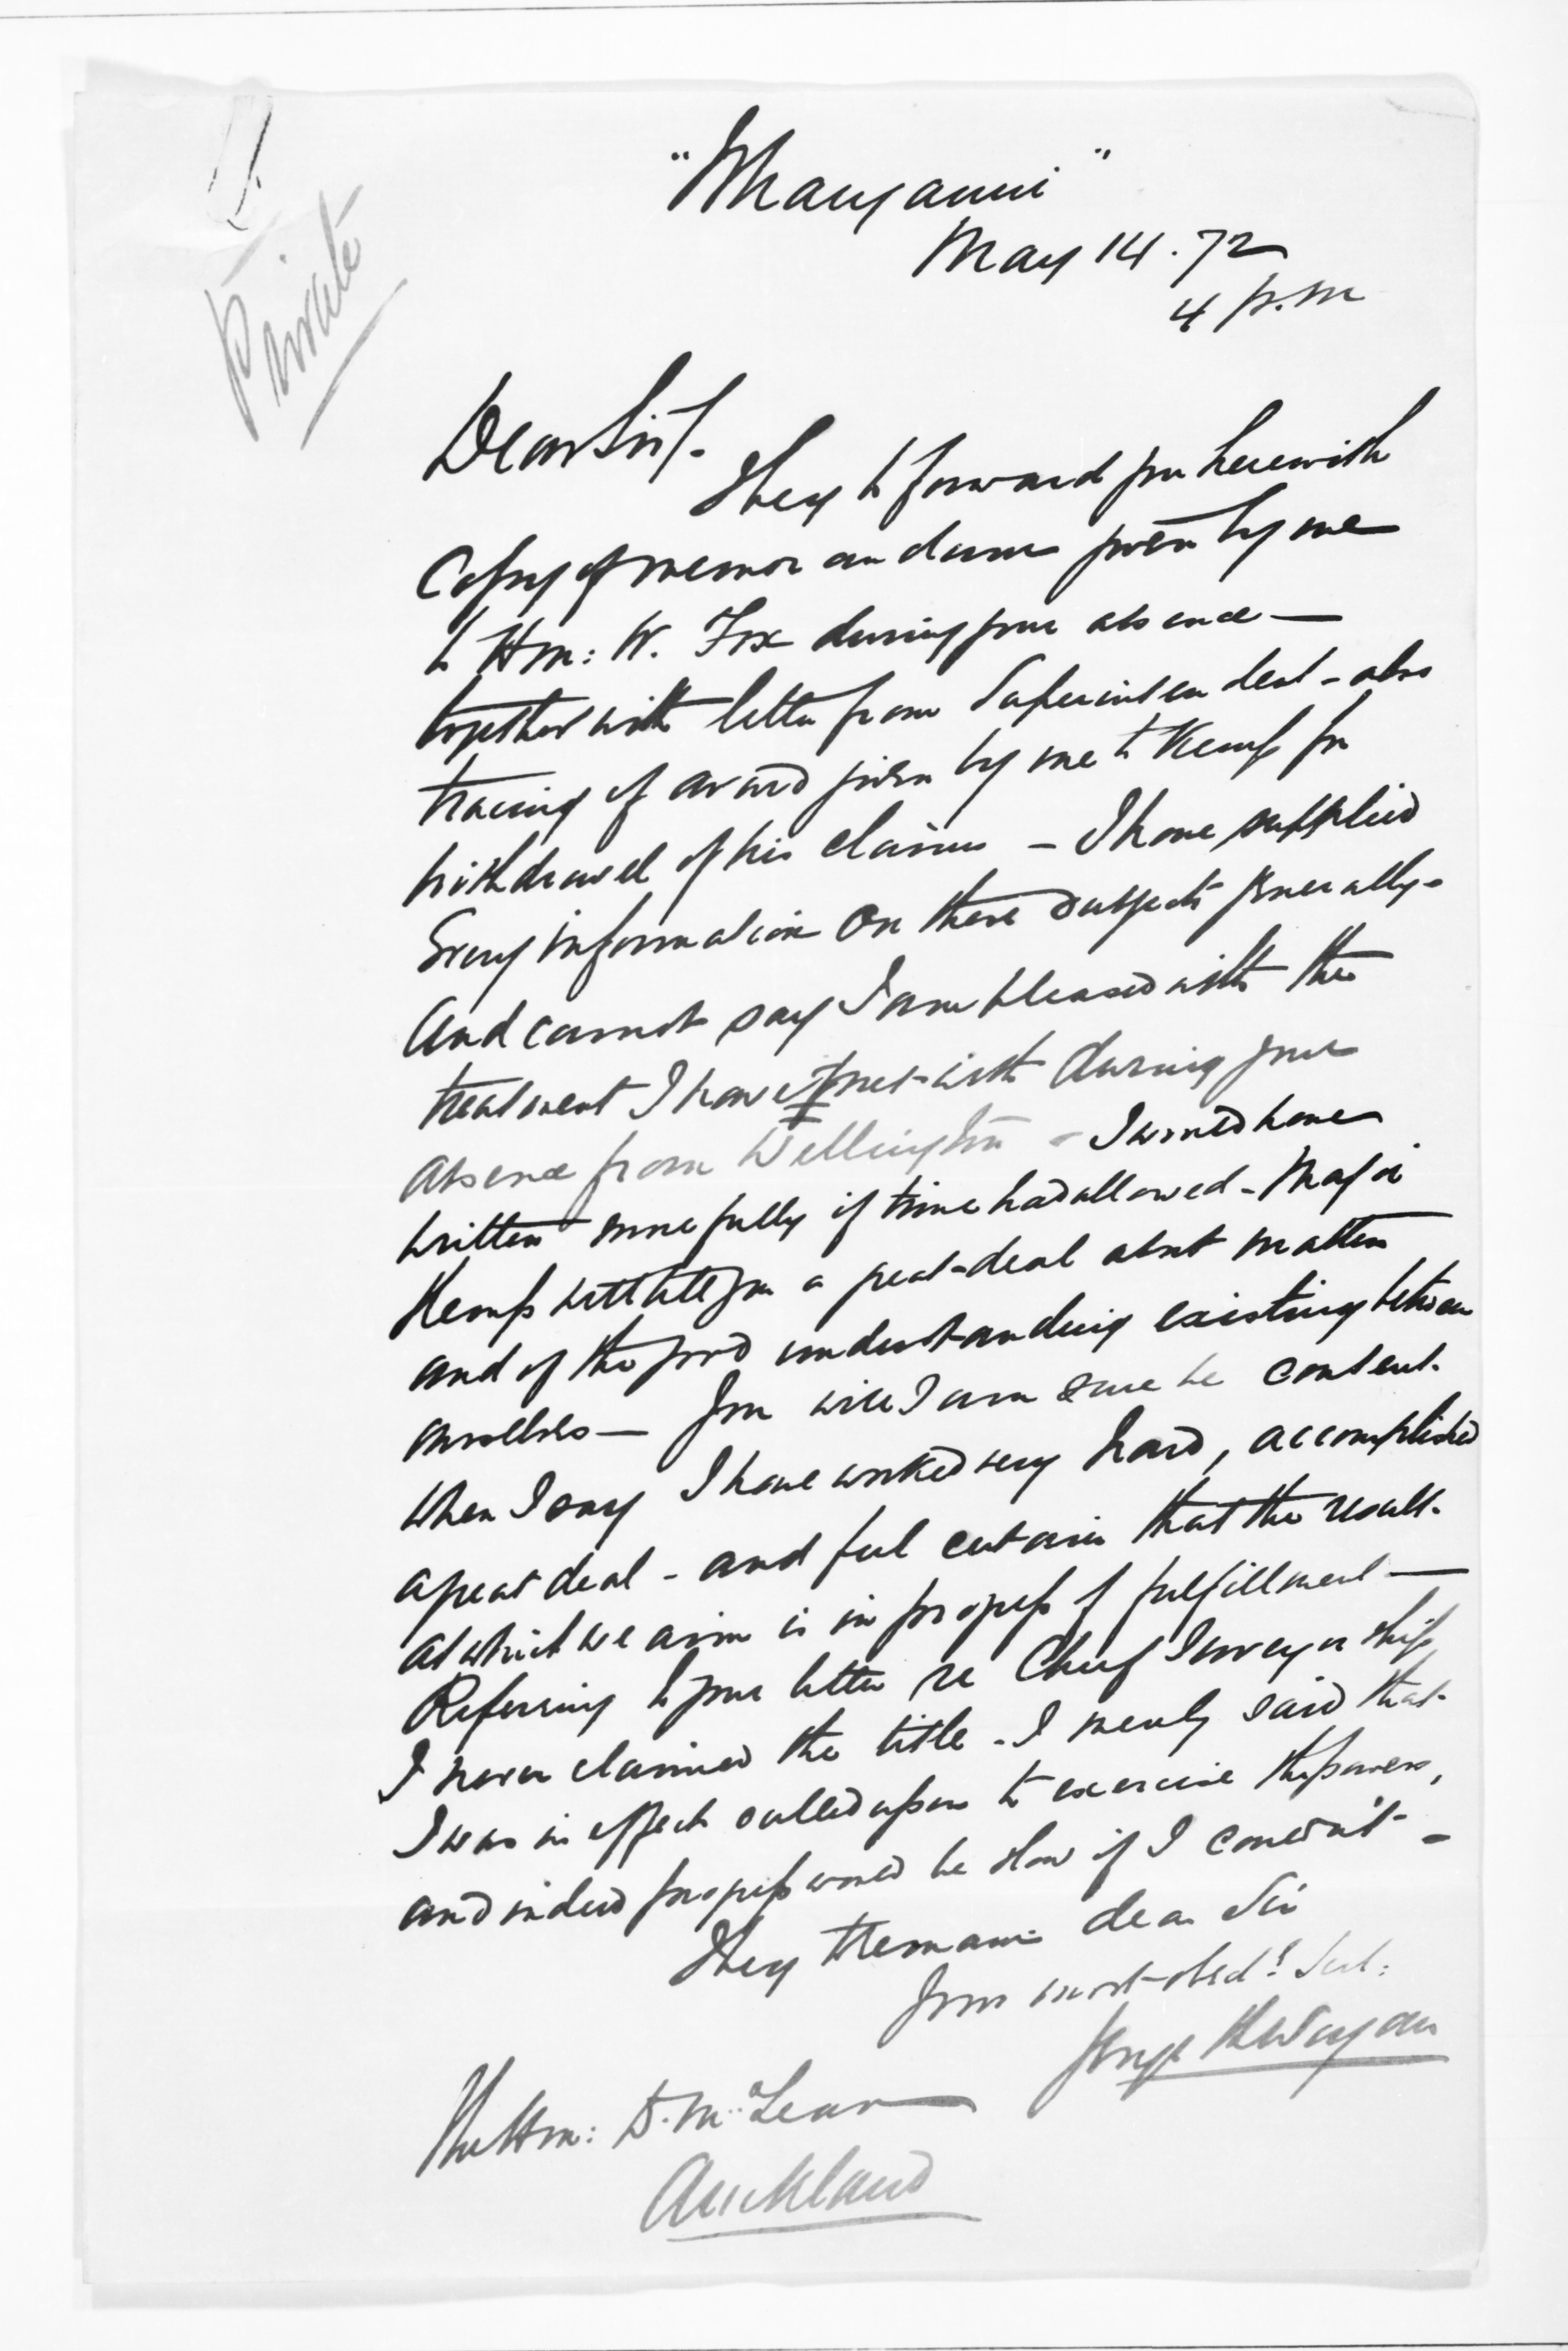 Private
"Whanganui"
May 14. 72
4 p.m
Dear Sir/.
I beg to forward you herewith
Copy of memorandum given by me
to Hon: W. Fox during your absence —
together with letter from Superintendent - also
tracing of award given by me to Kemp for
withdrawel of his claims — I have supplied
Every information On these subjects generally -
And cannot say I am pleased with the
treatment I have met with during your
absence from Wellington - I would have
written more fully if time had allowed - Major
Kemp will tell you a great deal about matters
and of the good understanding existing between
ourselves — You will I am sure be content
when I say I have worked very hard, accomplished
a great deal - and feel certain that the result
at which we aim is in progress of fulfillment —
Referring to your letter re Chief Surveyorship
I never claimed the title - I merely said that
I was in effect called upon to exercise the powers,
and indeed progress would be slow if I couldn't -
I beg to remain dear Sir
Your most obedt. Servt:
The Hon: D. McLean
Auckland